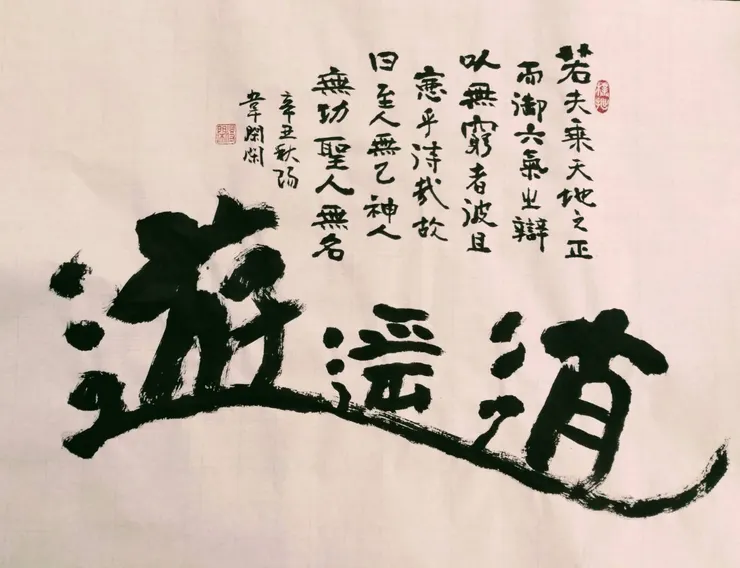 若夫乘天地之正
而御六氣之辯
以無窮者波且
惡乎待哉故
曰至人無己神人
無功聖人無名
辛丑秋陽
韋閑閑
逍遙遊